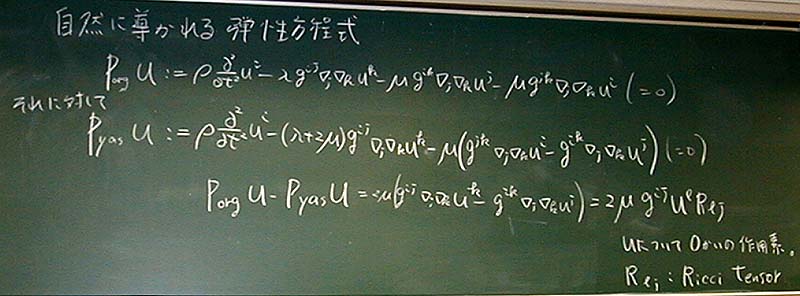 自然に導かれる弾性方程式
P_org u := ρ ∂²/∂t² uⁱ − λ gⁱʲ ∇ⱼ∇ₖ uᵏ − μ gʲᵏ ∇ⱼ∇ₖ uⁱ − μ gⁱᵏ ∇ⱼ∇ₖ uʲ (=0)
それに対して
P_yas u := ρ ∂²/∂t² uⁱ − (λ+2μ) gⁱʲ ∇ⱼ∇ₖ uᵏ − μ(gʲᵏ ∇ⱼ∇ₖ uⁱ − gⁱᵏ ∇ⱼ∇ₖ uʲ) (=0)
P_org u − P_yas u = 2μ(gⁱʲ ∇ⱼ∇ₖ uᵏ − gⁱᵏ ∇ⱼ∇ₖ uʲ) = 2μ gⁱʲ uˡ R_lj
uについて0かいの作用素。
R_lj : Ricci tensor